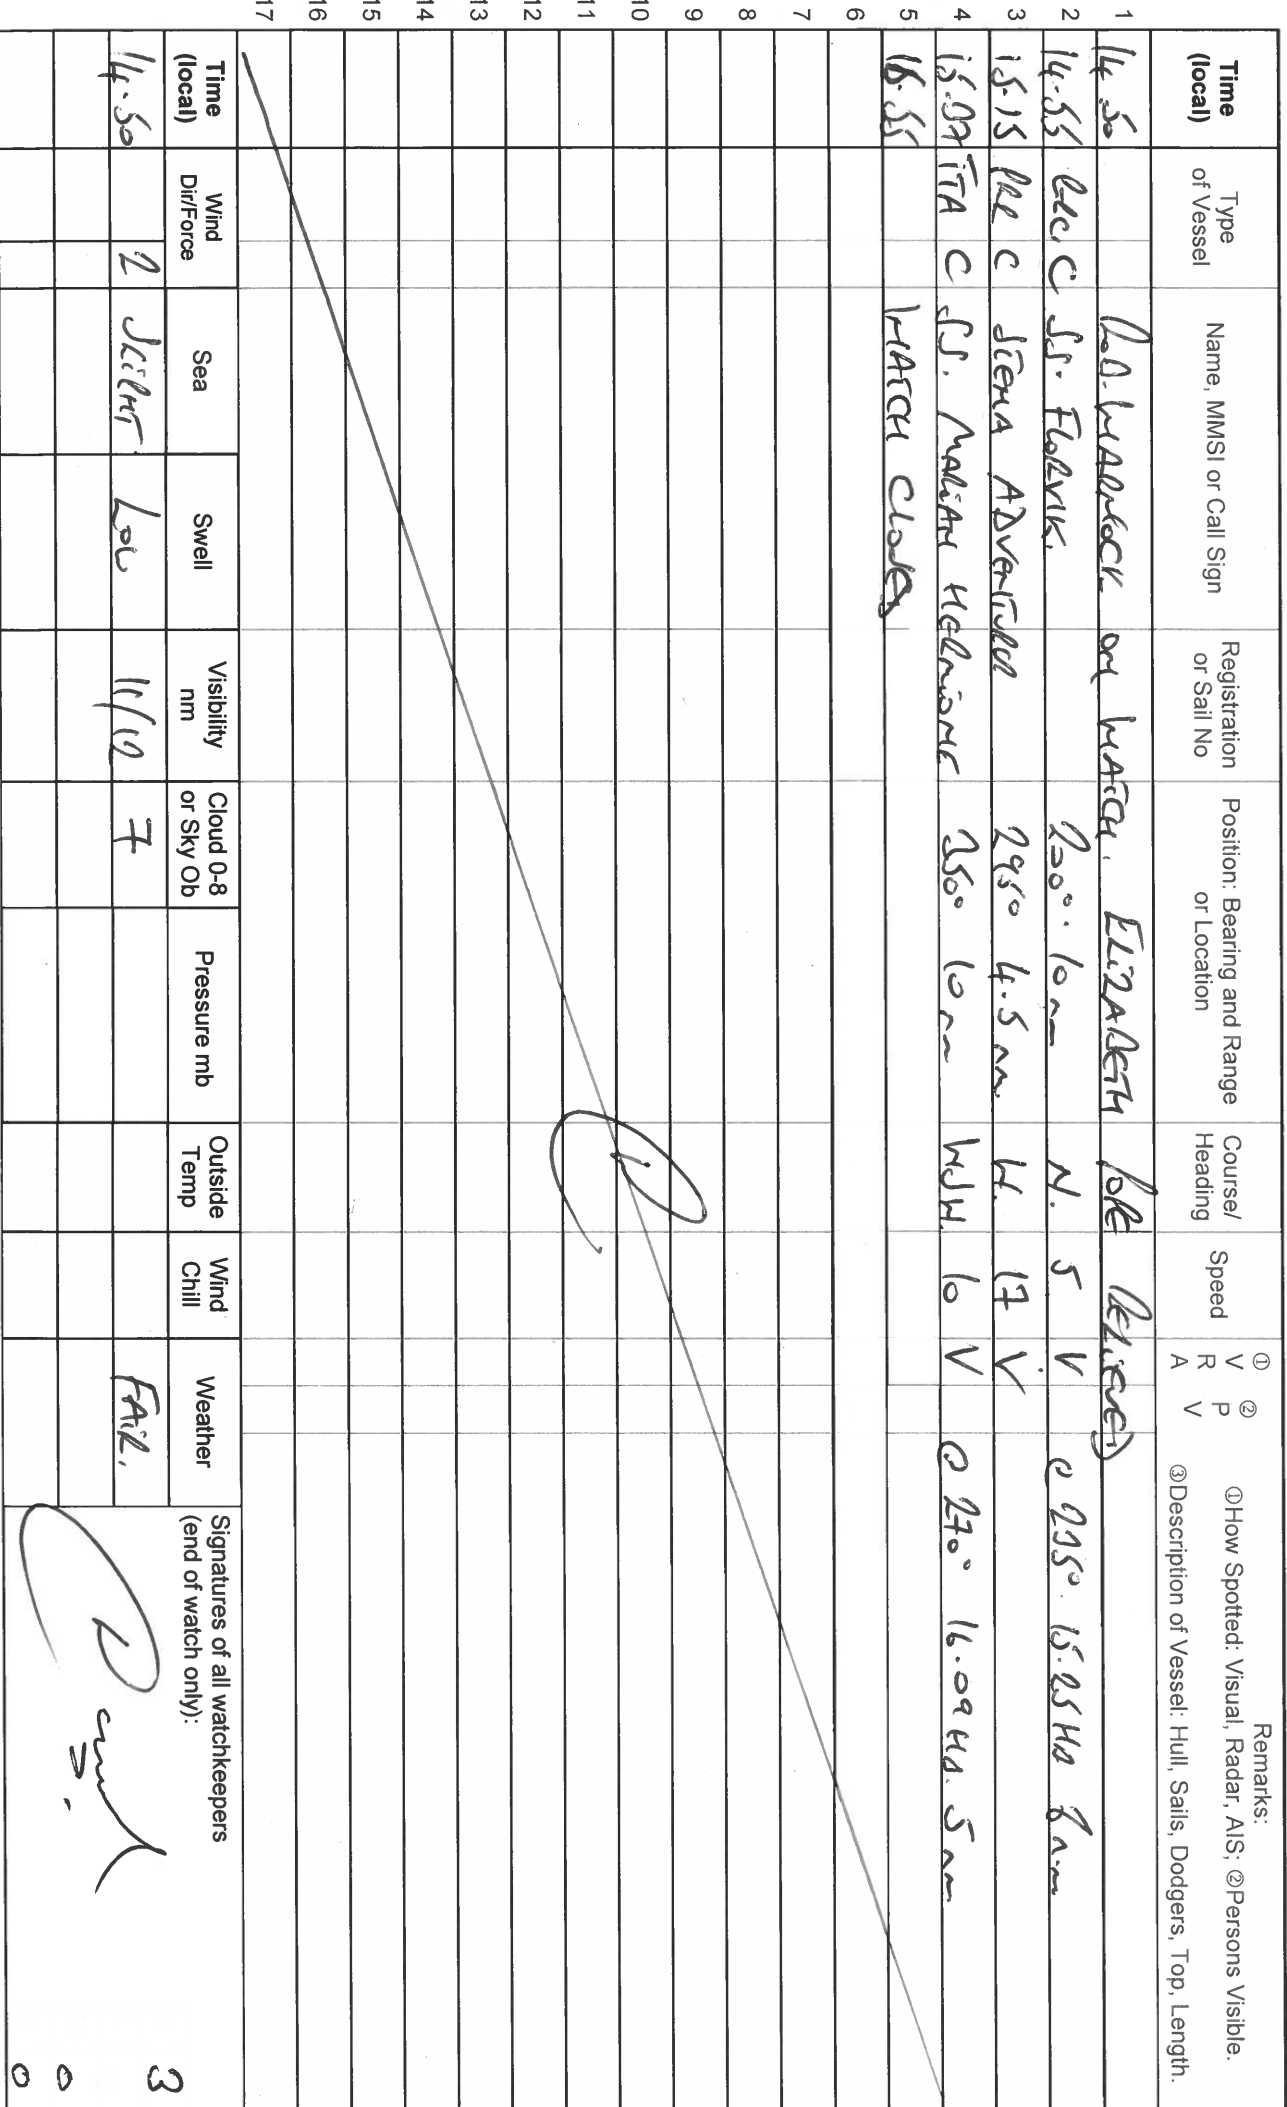 Time (local) Type of Vessel Name, MMSI or Call Sign Registration or Sail No Position: Bearing and Range or Location Course/ Heading Speed ① V R A ② P V Remarks: ①How Spotted: Visual, Radar, AIS; ②Persons Visible. ③Description of Vessel: Hull, Sails, Dodgers, Top, Length.
1 14.50 ON WATCH. ELIZABETH POPE RELIEVED
2 14.55 C SS. FLORVIK. 200°. 10nm N. 5 V @ 295°. 15.25 HR 8n.m
3 15.15 C STENA ADVENTURER 295° 4.5nm. W. 17 V
4 ITA C SS. MARIAN HERMIONE 350° 10nm WSW. 10 V @ 270° 16.09 HR. 5nm
5 16.55 WATCH CLOSED
6
7
8
9
10
11
12
13
14
15
16
17
Time (local) Wind Dir/Force Sea Swell Visibility nm Cloud 0-8 or Sky Ob Pressure mb Outside Temp Wind Chill Weather Signatures of all watchkeepers (end of watch only):
14.50 2 SLIGHT LOW 7 FAIR.
3
0
0